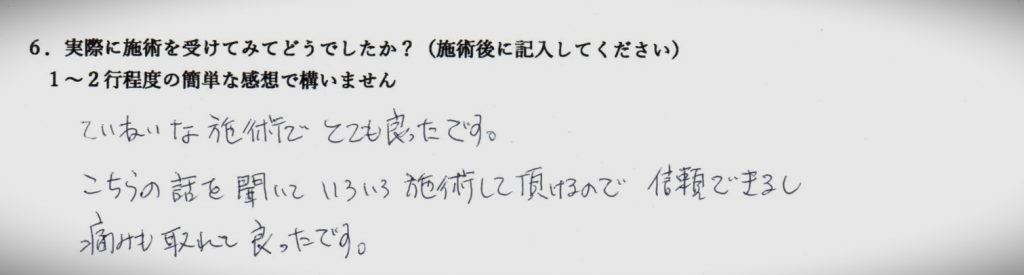 6．実際に施術を受けてみてどうでしたか？（施術後に記入してください）
1～2行程度の簡単な感想で構いません
ていねいな施術でとても良ったです。
こちらの話を聞いていろいろ施術して頂けるので 信頼できるし
痛みも取れて良ったです。